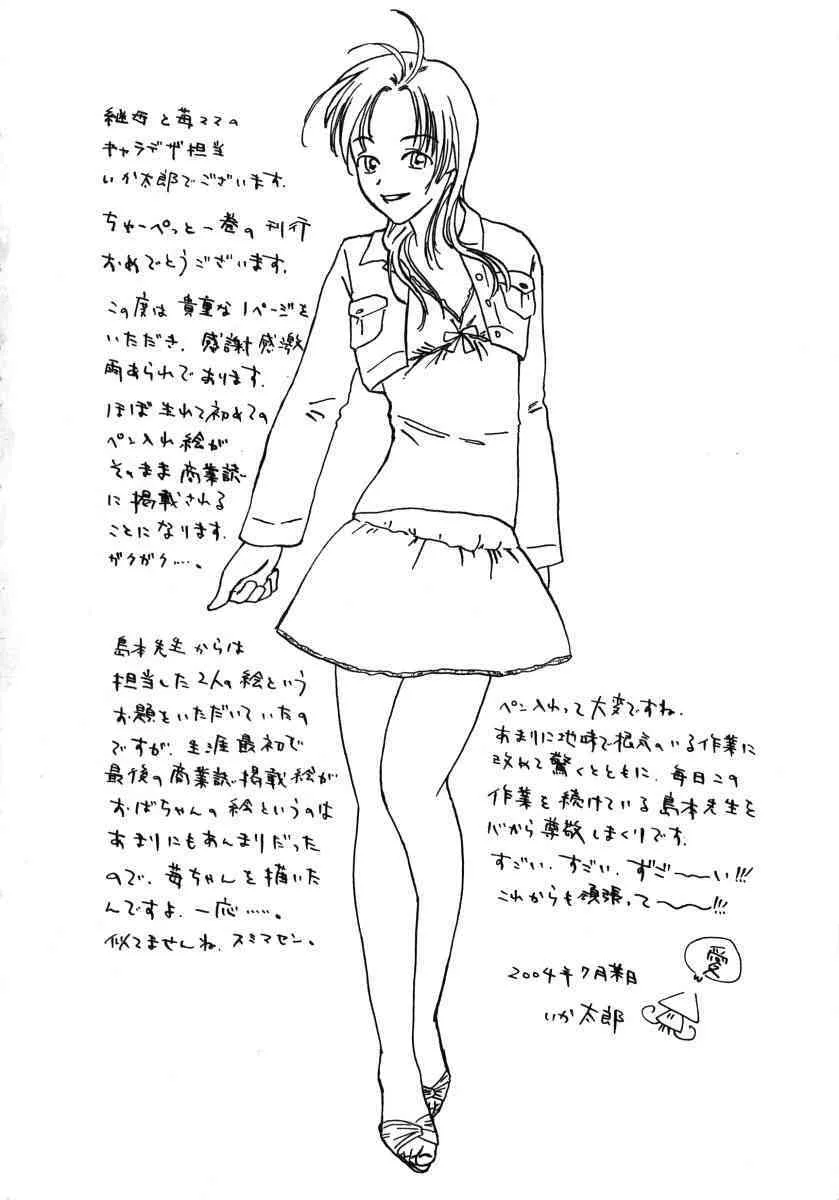 継母と苺ママの
キャラデザ担当
いか太郎でございます.
ちゃーぺっと一巻の刊行
おめでとうございます.
この度は貴重な1ページを
いただき、感謝感激
雨あられであります.
ほぼ生れて初めての
ペン入れ絵が
そのまま商業誌
に掲載される
ことになります.
ガクガク….。
島本先生からは
担当した2人の絵という
お題をいただいていたの
ですが、生涯最初で
最後の商業誌掲載絵が
おばちゃんの絵というのは
あまりにもあんまりだった
ので、苺ちゃんを描いた
んですよ、一応……。
似てませんね、スミマセン。
ペン入れって大変ですね.
あまりに地味で根気のいる作業に
改めて驚くとともに、毎日この
作業を続けている島本先生を
心から尊敬しまくりです.
すごい、すごい、ずご〜〜い!!!
これからも頑張って〜〜!!!
愛
2004年7月某日
いか太郎